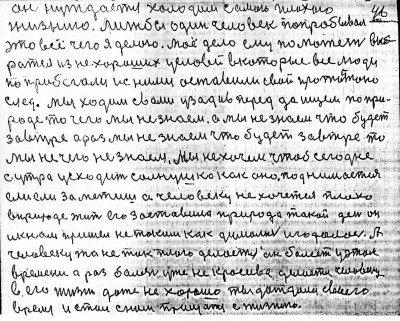 46
он нуждается холодим самою плохою
жизнию. Лиж бы один человек попробывал
это всё чего я делаю. Моё дело ему поможет выб
ратся из не хороших условей в которые все люди
по прибегали и с ними оставили свой
след. Мы ходим с вами узадив перед да ищем по при-
роде то чего мы не знаем. а мы не знаем что будет
завтре а раз мы не знаем что будет завтре то
мы не чего не знаем. Мы не хочем чтоб сегодне
с утра уходит солнушко как оно, поднимается
или заметиш а человеку не хочется плохо
в природе жит его заставила природа такой ден он
к нам пришел не таким как думали
человеку та не так того делаете он болеет у этом
времени а раз болен уже не красиво делает человек
в его жизни даже не хорошо ты дождался своего
время и стал с ним прощатся с жизнию.